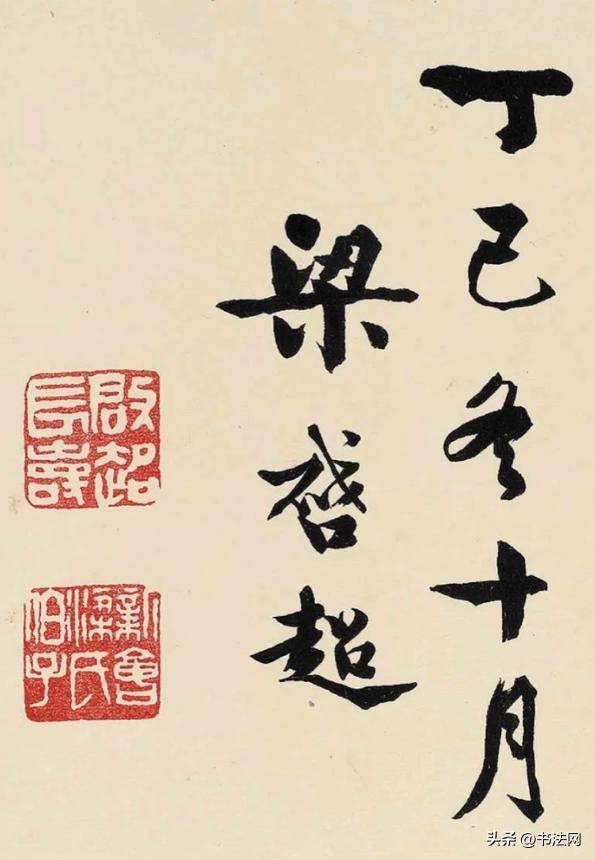 丁巳冬十月
梁啓超
啟超
長壽
新會
梁氏
伯子
头条 @书法网